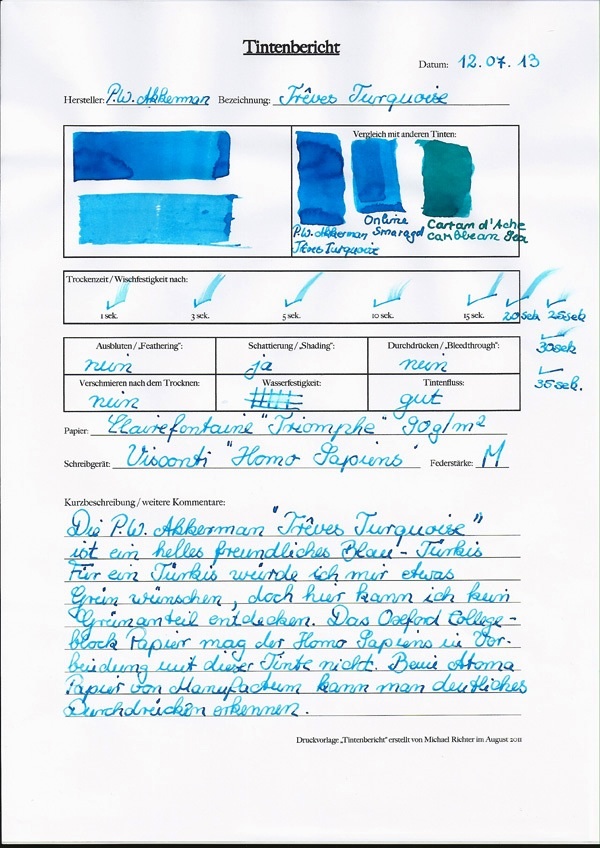 Tintenbericht
Datum: 12.07.13
Hersteller: P.W. Akkerman Bezeichnung: Trêves Turquoise
Vergleich mit anderen Tinten:
P.W. Akkerman Trêves Turquoise
Online Smaragd
Cartam d'Ache caribbean Sea
Trockenzeit / Wischfestigkeit nach:
1 sek. 3 sek. 5 sek. 10 sek. 15 sek. 20 sek 25 sek
30 sek
35 sek.
Ausbluten / „Feathering": Schattierung / „Shading": Durchdrücken / „Bleedthrough":
nein ja nein
Verschmieren nach dem Trocknen: Wasserfestigkeit: Tintenfluss:
nein gut
Papier: Clairefontaine "Triomphe" 90g/m²
Schreibgerät: Visconti "Homo Sapiens" Federstärke: M
Kurzbeschreibung / weitere Kommentare:
Die P.W. Akkerman "Trêves Turquoise"
ist ein helles freundliches Blau - Türkis
Für ein Türkis würde ich mir etwas
Grün wünschen, doch hier kann ich kein
Grünanteil entdecken. Das Oxford College-
block Papier mag der Homo Sapiens in Ver-
bindung mit dieser Tinte nicht. Beim Atoma
Papier von Manufactum kann man deutliches
Durchdrücken erkennen.
Druckvorlage „Tintenbericht" erstellt von Michael Richter im August 2011